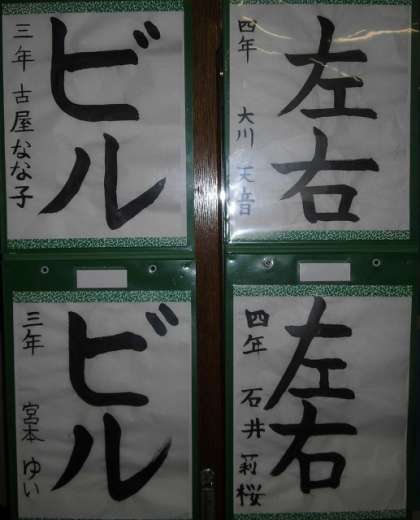 ビル
三年 古屋なな子
左右
四年 大川天音
ビル
三年 宮本ゆい
左右
四年 石井莉桜